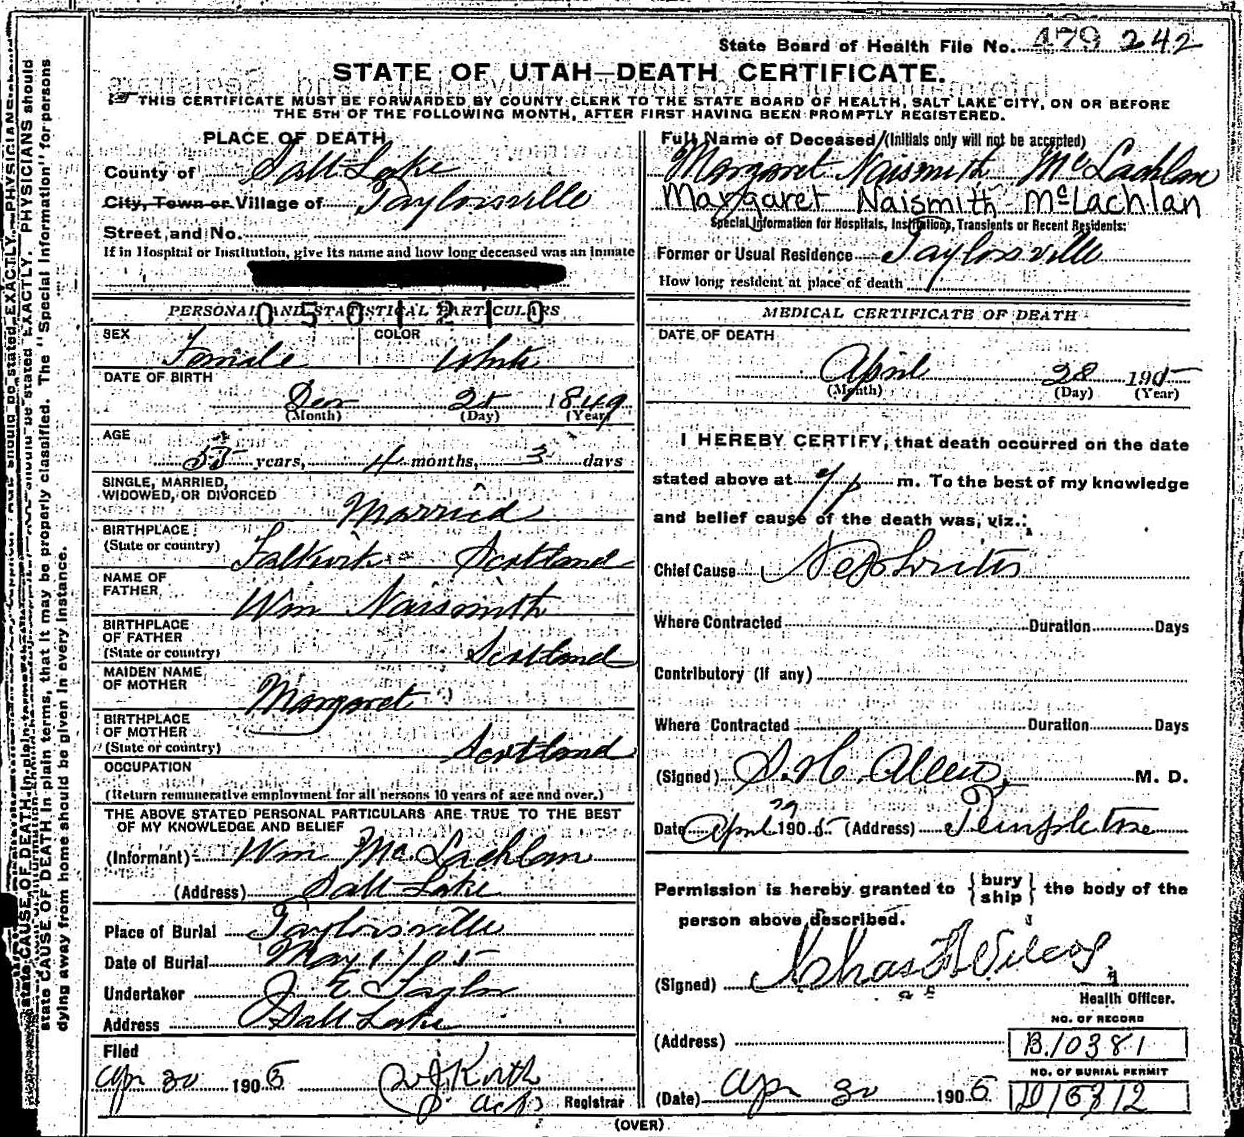 State Board of Health File No. 479 242
STATE OF UTAH—DEATH CERTIFICATE.
THIS CERTIFICATE MUST BE FORWARDED BY COUNTY CLERK TO THE STATE BOARD OF HEALTH, SALT LAKE CITY, ON OR BEFORE
THE 5TH OF THE FOLLOWING MONTH, AFTER FIRST HAVING BEEN PROMPTLY REGISTERED.
PLACE OF DEATH
County of Salt Lake
City, Town or Village of Taylorsville
Street, and No.
If in Hospital or Institution, give its name and how long deceased was an inmate
0501210
PERSONAL AND STATISTICAL PARTICULARS
SEX Female COLOR White
DATE OF BIRTH
Dec 25 1849
(Month) (Day) (Year)
AGE
55 years, 4 months, 3 days
SINGLE, MARRIED,
WIDOWED, OR DIVORCED
Married
BIRTHPLACE
(State or country) Falkirk Scotland
NAME OF
FATHER Wm Naismith
BIRTHPLACE
OF FATHER
(State or country) Scotland
MAIDEN NAME
OF MOTHER Margaret
BIRTHPLACE
OF MOTHER
(State or country) Scotland
OCCUPATION
(Return remunerative employment for all persons 10 years of age and over.)
THE ABOVE STATED PERSONAL PARTICULARS ARE TRUE TO THE BEST
OF MY KNOWLEDGE AND BELIEF
(Informant) Wm McLachlan
(Address) Salt Lake
Place of Burial Taylorsville
Date of Burial May 1/05
Undertaker J E Taylor
Address Salt Lake
Filed
Apr 30 1905
Registrar
Full Name of Deceased (Initials only will not be accepted)
Margaret Naismith McLachlan
Margaret Naismith McLachlan
Special Information for Hospitals, Institutions, Transients or Recent Residents:
Former or Usual Residence Taylorsville
How long resident at place of death
MEDICAL CERTIFICATE OF DEATH
DATE OF DEATH
April 28 1905
(Month) (Day) (Year)
I HEREBY CERTIFY, that death occurred on the date
stated above at p m. To the best of my knowledge
and belief cause of the death was, viz.:
Chief Cause Nephritis
Where Contracted Duration Days
Contributory (if any)
Where Contracted Duration Days
(Signed) S. H. Allen M. D.
Date April 29 1905 (Address) Templeton
Permission is hereby granted to {bury ship} the body of the
person above described.
(Signed) Chas F Wilcox
Health Officer.
(Address)
NO. OF RECORD
B.10381
NO. OF BURIAL PERMIT
(Date) Apr 30 1905
(OVER)
state CAUSE OF DEATH in plain terms, that it may be properly classified. The "Special Information" for persons
dying away from home should be given in every instance.